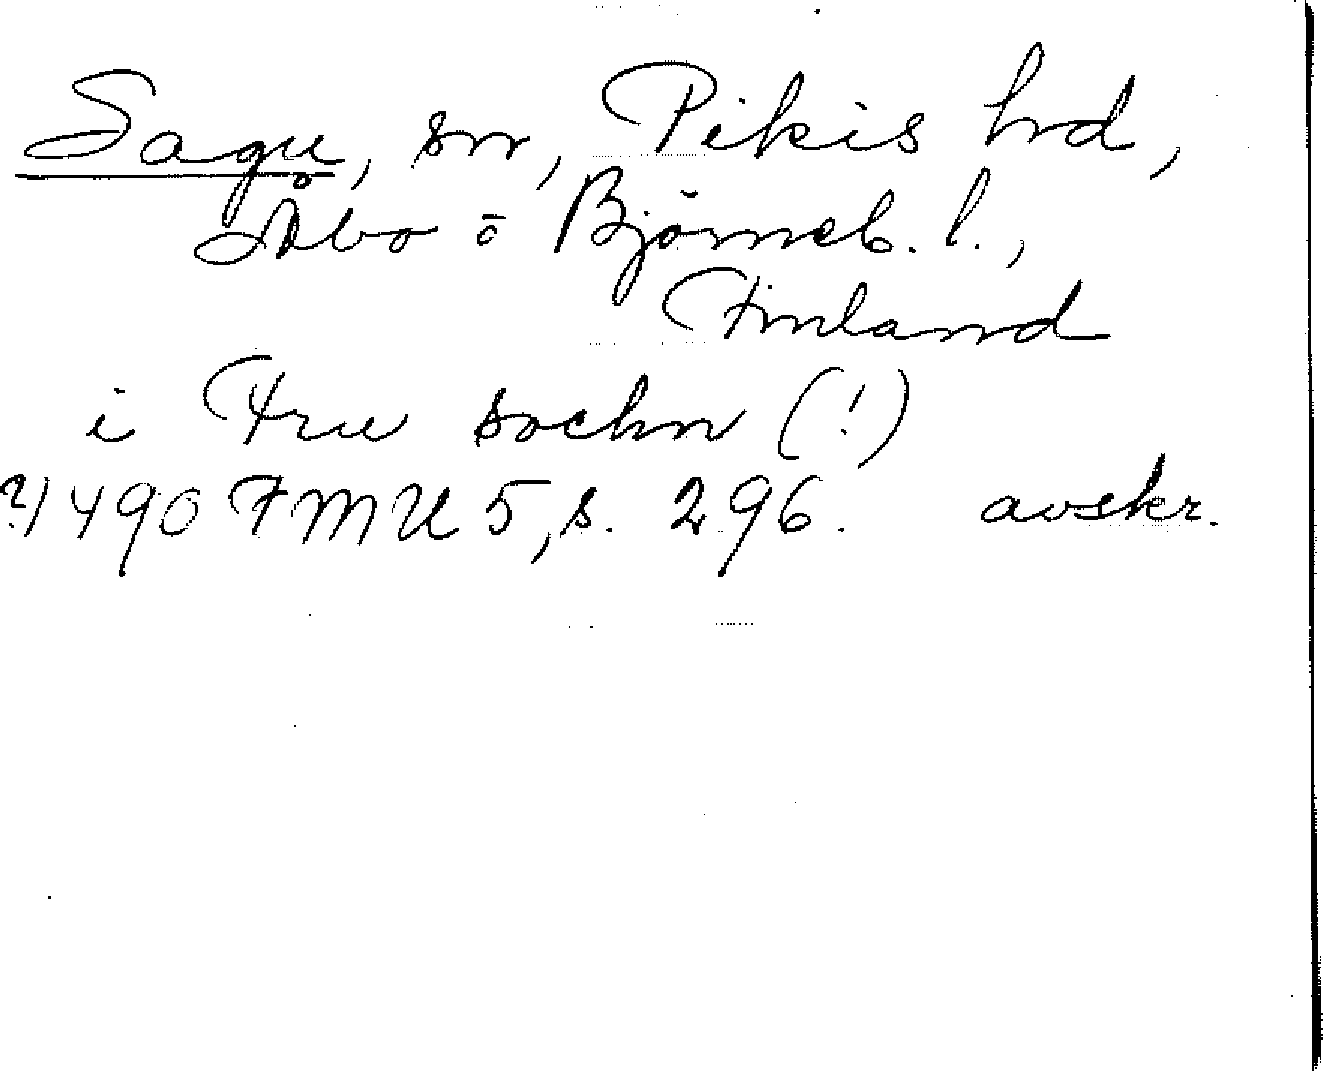 Sagu, sn, Pikis hd,
Åbo o Björneb. l.,
Finland
i Fru sochn (!)
2/4 1490 FMU 5, s. 296. avskr.